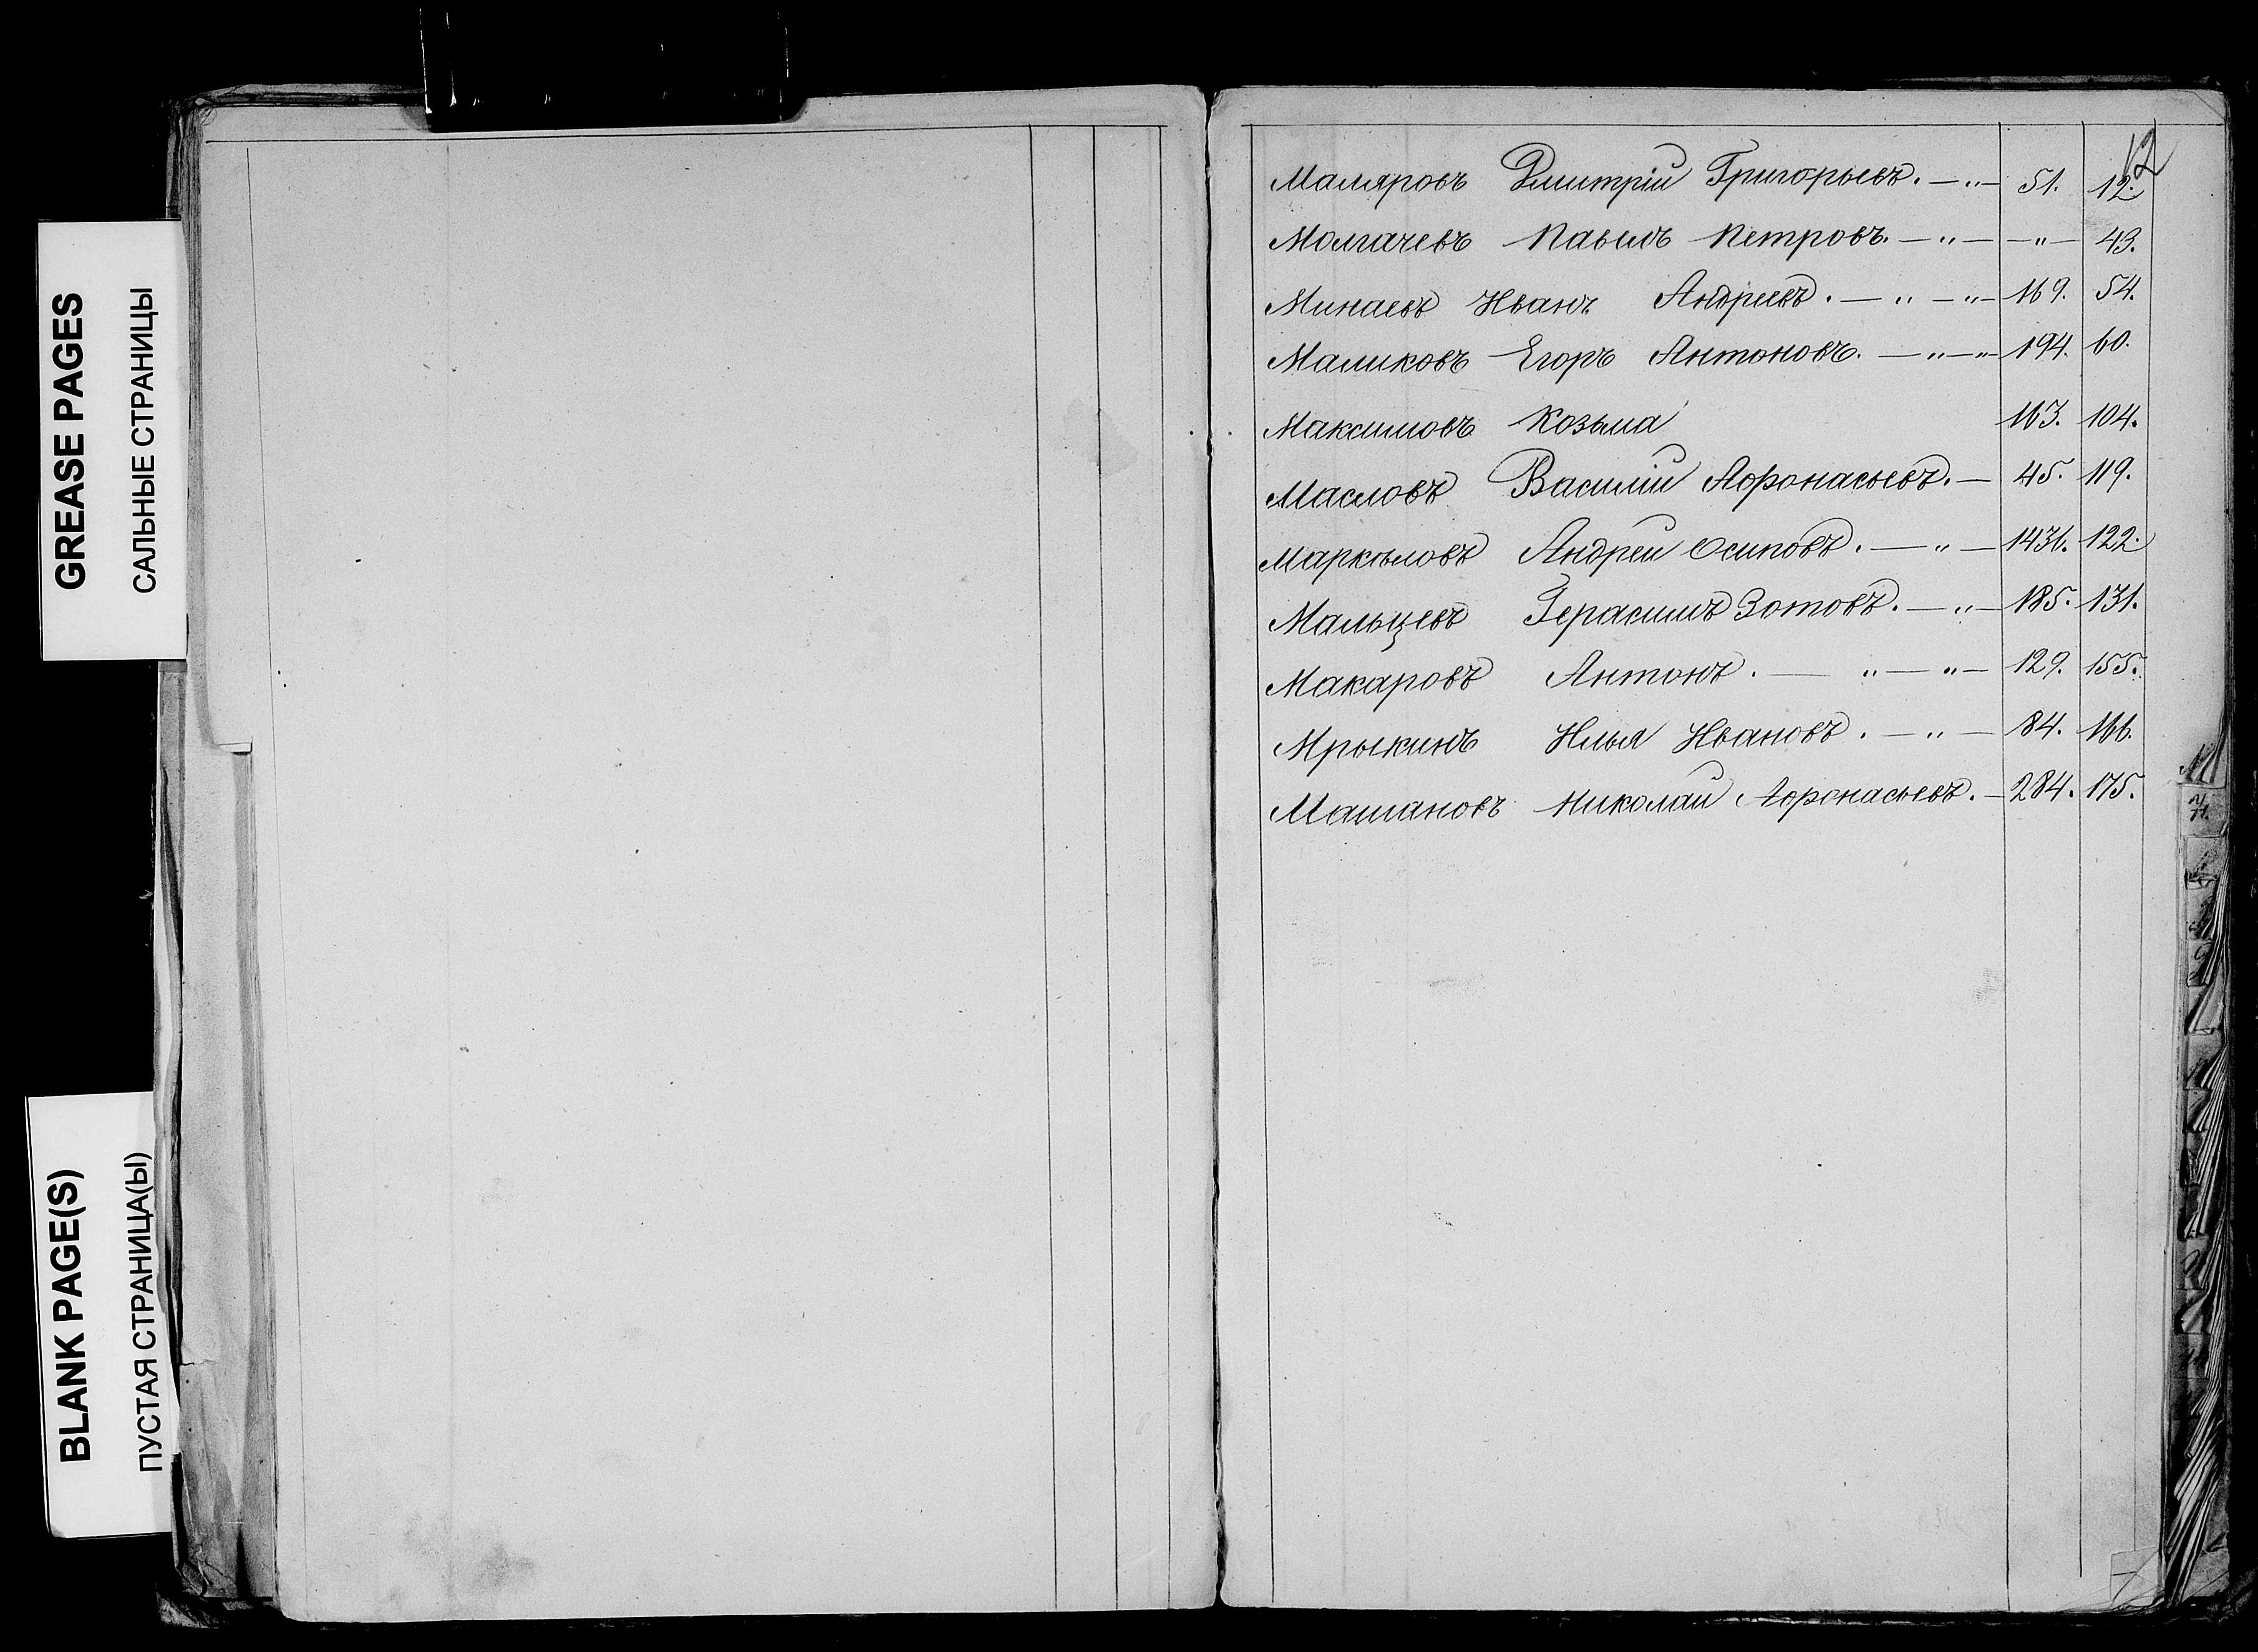 GREASE PAGES
САЛЬНЫЕ СТРАНИЦЫ
BLANK PAGE(S)
ПУСТАЯ СТРАНИЦА(Ы)
12
Маляровъ Дмитрій Григорьевъ. — „ — 51. 12.
Молгачевъ Павелъ Петровъ. — „ — — „ — 43.
Минаевъ Иванъ Андреевъ. — „ — „ — 169. 54.
Маликовъ Егоръ Антоновъ. — „ — „ — 194. 60.
Максимовъ Козьма 163. 104.
Масловъ Василій Афонасьевъ. — 45. 119.
Маркѣловъ Андрей Осиповъ. — „ — 1431. 122.
Мальцевъ Герасимъ Зотовъ. — „ — 185. 131.
Макаровъ Антонъ. — „ — „ — 129. 155.
Мрыкинъ Илья Ивановъ. — „ — 84. 166.
Машановъ Николай Афонасьевъ. — 284. 175.
М